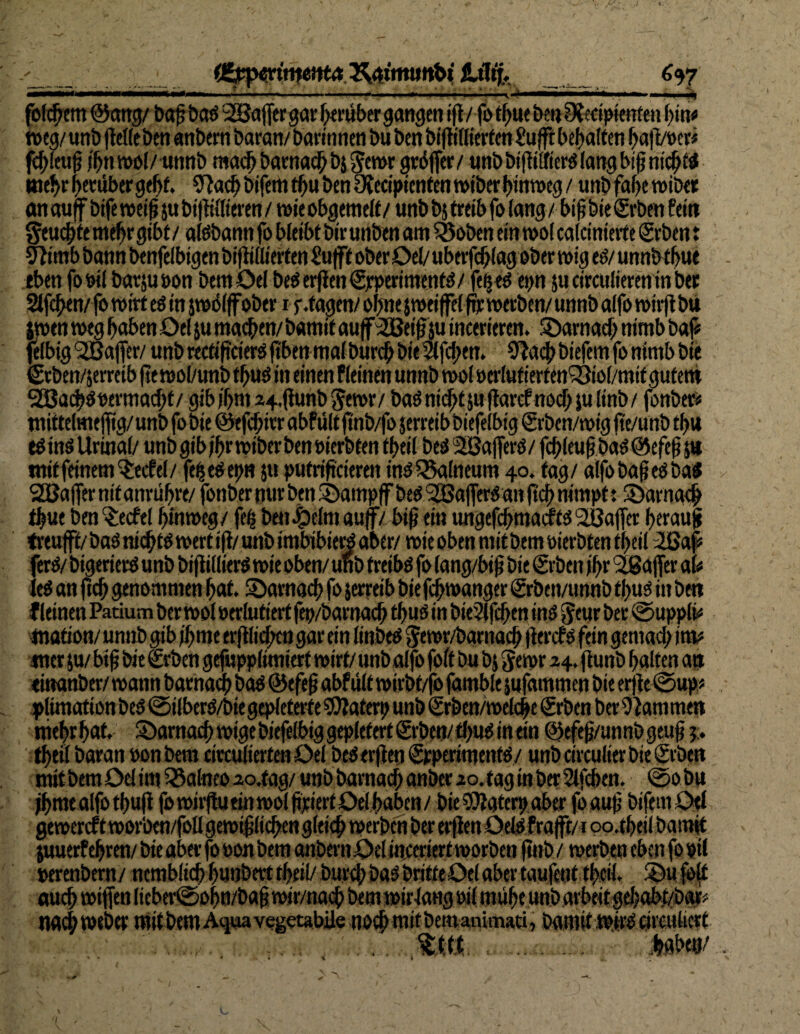 Experimenta Raimundi Lilij. 697
solchem Gang/ daß das Wasser gar herüber gangen ist/ so thue den Recipienten hin⸗
weg/ und stelle den andern daran/ darinnen du den distillierten Lufft behalten hast/ver⸗
schleuß ihn wol/ unnd mach darnach dz Fewr grösser/ und distilliers lang biß nichts
mehr herüber geht. Nach disem thu den Recipienten wider hinweg/ und fahe wider
an auff dise weiß zu distillieren/ wie obgemelt/ und dz treib so lang/ biß die Erden kein
Feuchte mehr gibt/ alsdann so bleibt dir unden am Boden ein wol calcinierte Erden:
Nimb dann denselbigen distillierten Lufft oder Oel/ uberschlag oder wig es/ unnd thue
eben so vil darzu von dem Oel des ersten Experiments/ setz es eyn zu circulieren in der
Aschen/ so wirt es in zwölff oder 15.tagen/ ohne zweiffel fix werden/ unnd also wirst du
zwen weg haben Oel zu machen/ damit auff Weiß zu incerieren. Darnach nimb das⸗
selbig Wasser/ und rectificiers siben mal durch die Aschen. Nach diesem so nimb die
Erden/zerreib sie wol/und thus in einen kleinen unnd wol verlutierten Viol/mit gutem
Wachs vermacht/ gib ihm 24.stund Fewr/ das nicht zu starck noch zu lind/ sonder⸗
mittelmessig/ und so die Geschirr abkült sind/so zerreib dieselbig Erden/wig sie/und thu
es ins Urinal/ und gib ihr wider den vierdten theil des Wassers/ schleuß das Gefeß zu
mit seinem Deckel/ setz es eyn zu putrificieren ins Balneum 40. tag/ also daß es das
Wasser nit anrühre/ sonder nur den Dampff des Wassers an sich nimpt: Darnach
thue den Deckel hinweg/ setz den Helm auff/ biß ein ungeschmackts Wasser herauß
treufft/ das nichts wert ist/ und imbibiers aber/ wie oben mit dem vierdten theil Was⸗
sers/ digeriers und distilliers wie oben/ und treibs so lang/biß die Erden ihr Wasser al⸗
les an sich genommen hat. Darnach so zerreib die schwanger Erden/unnd thus in den
kleinen Patium der wol verlutiert sey/darnach thus in die Aschen ins Feur der Suppli⸗
mation/ unnd gib ihme erstlichen gar ein lindes Fewr/darnach stercks fein gemach im⸗
mer zu/ biß die Erden gesupplimiert wirt/ und also solt du dz Fewr 24. stund halten an
einander/ wann darnach das Gefeß abkült wirdt/so samble zusammen die erste Sup⸗
plimation des Silbers/die gepleterte Matery und Erden/welche Erden der Flammen
mehr hat. Darnach wige dieselbig gepletert Erden/ thus in ein Gefeß/unnd geuß 3.
theil daran von dem circulierten Oel des ersten Experiments/ und circulier die Erden
mit dem Oel im Balneo 20.tag/ und darnach ander 20. tag in der Aschen. So du
ihme also thust so wirstu ein wol fixiert Oel haben/ die Matery aber so auß disem Oel
gewerckt worden/soll gewißlichen gleich werden der ersten Oels krafft/100.theil damit
zuuerkehren/ die aber so von dem andern Oel inceriert worden sind/ werden eben so vil
verendern/ nemblich hundert theil/ durch das dritte Oel aber tausent theil. Du solt
auch wissen lieber Sohn/daß wir/nach dem wir lang vil mühe und arbeit gehabt/dar⸗
nach weder mit dem Aqua vegetabile noch mit dem animati, damit wirs circuliert
Tttt haben/